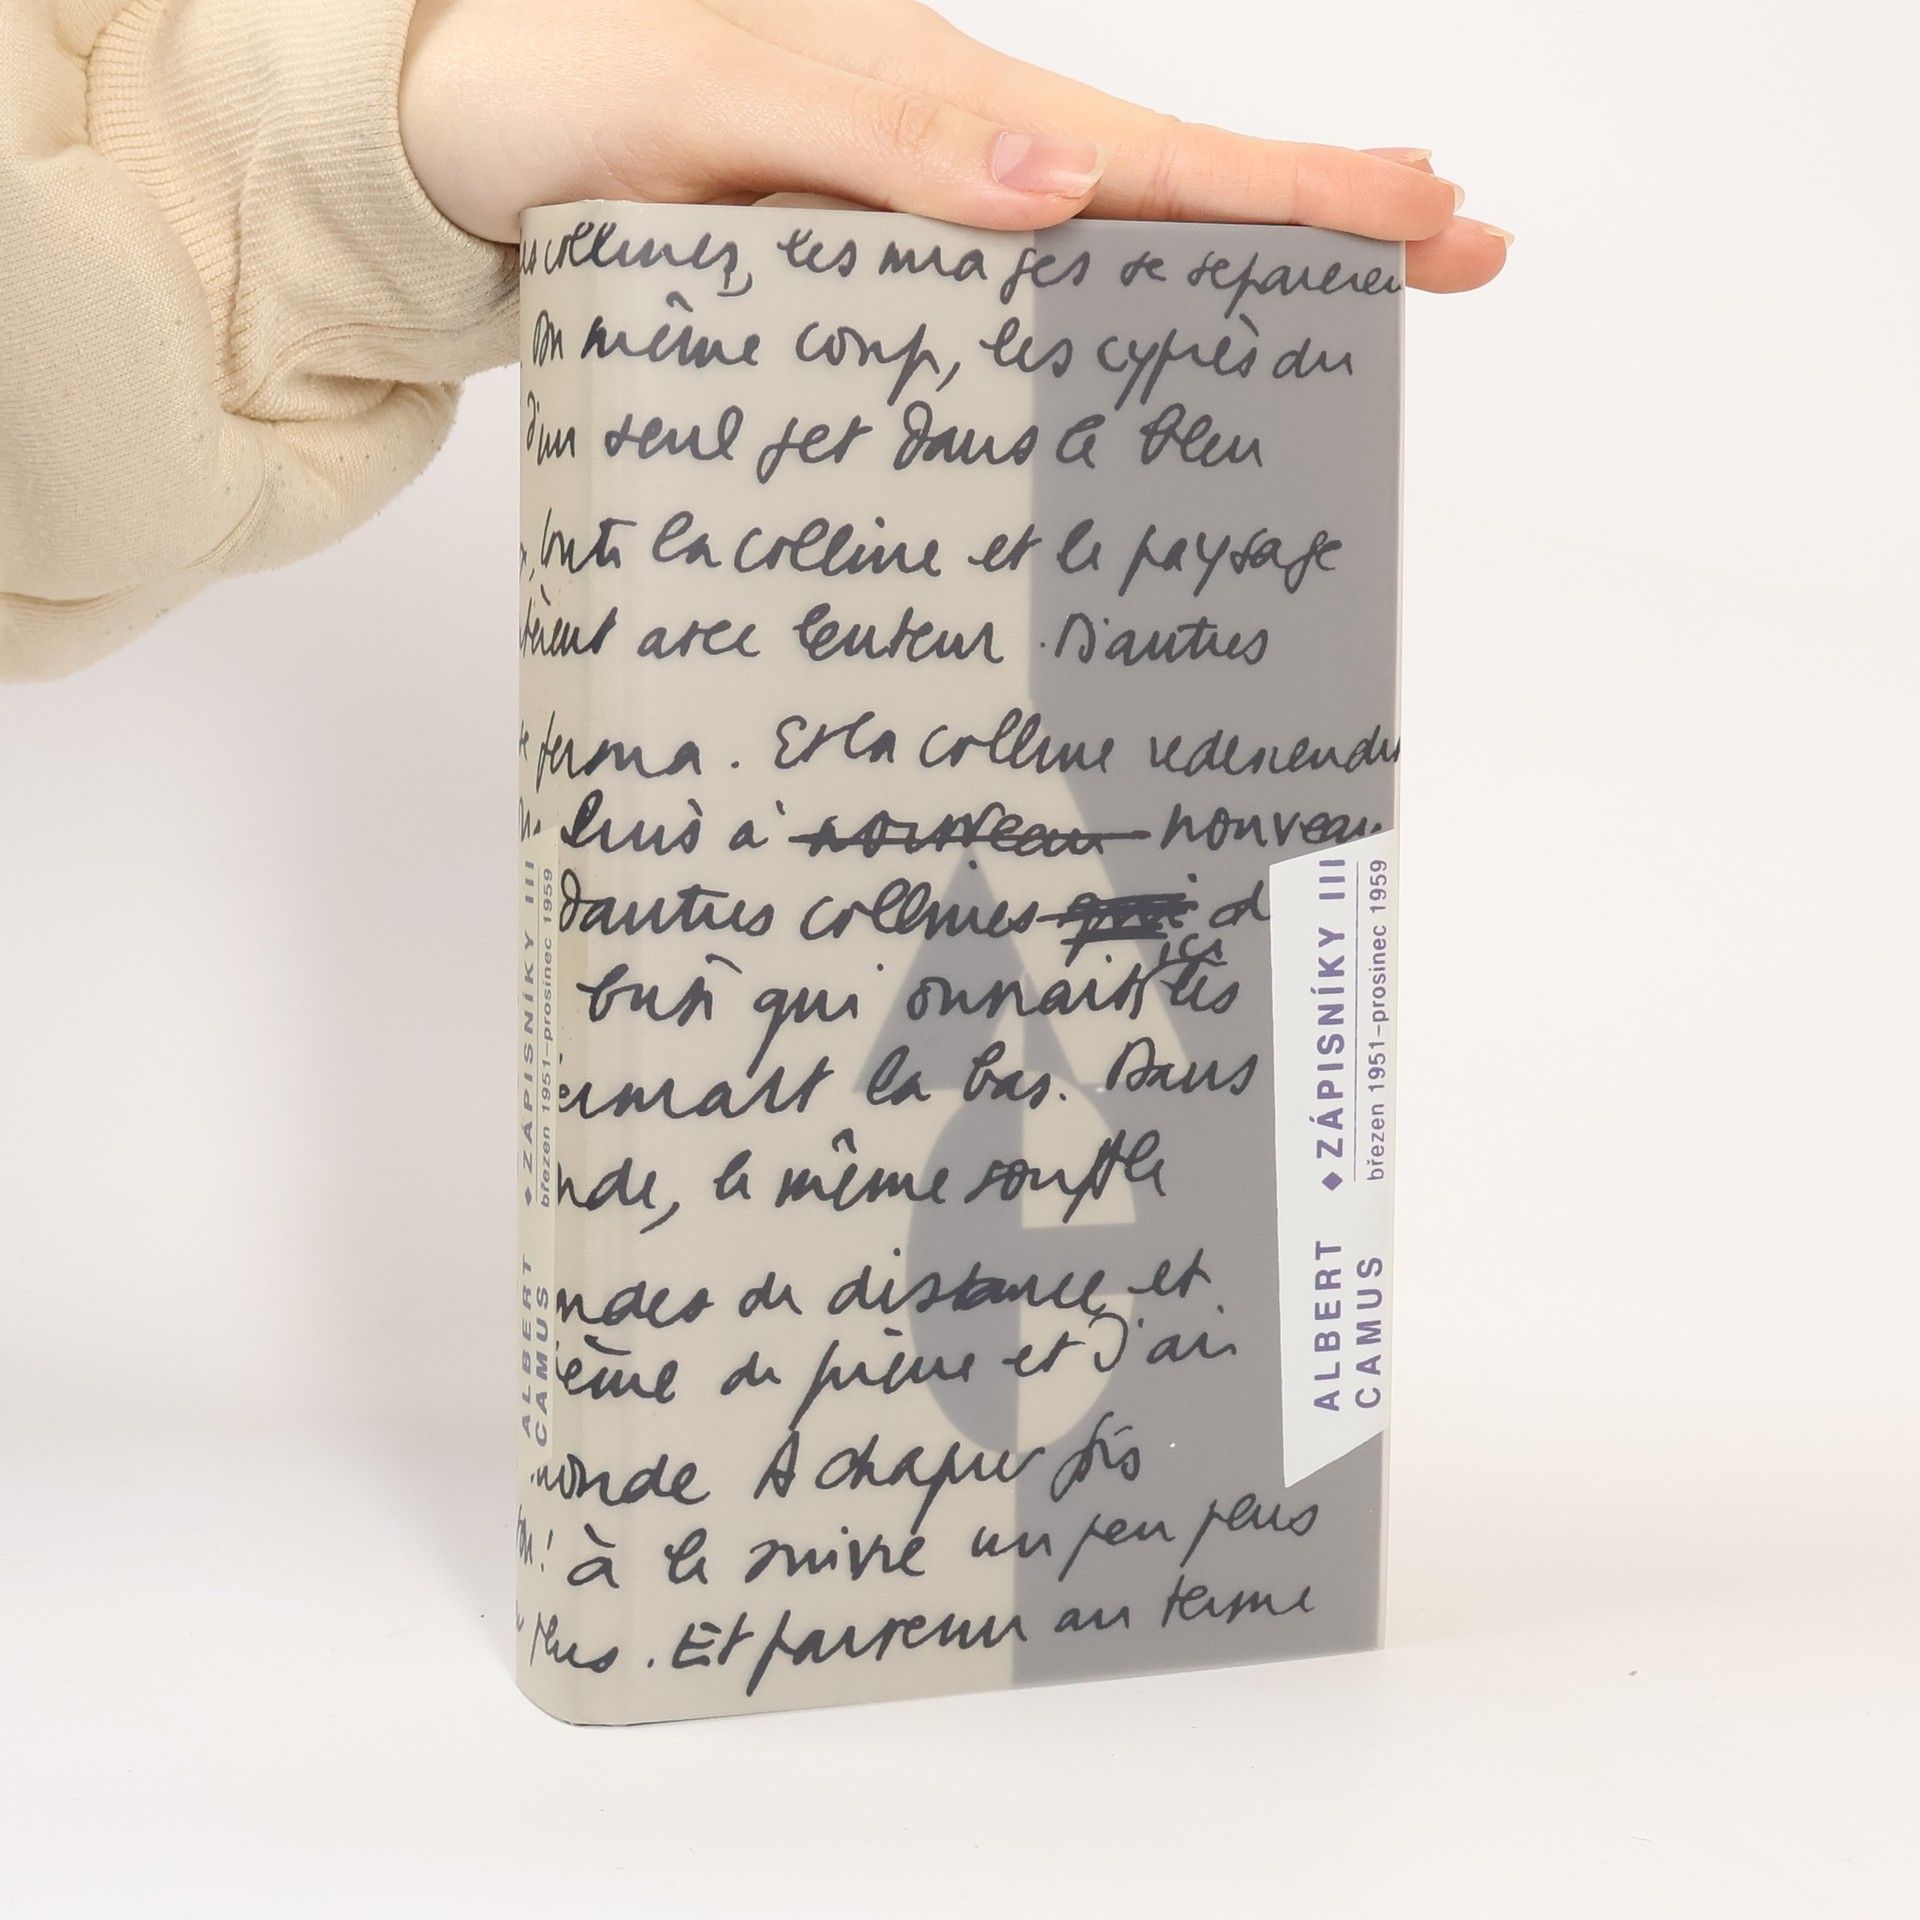 collines, les nuages se séparèren
même coup, les cyprès du
d'un seul jet dans le bleu
toute la colline et le paysage
avec lenteur. D'autres
ferma. Et la colline redescendit
puis à nouveau nouveau
d'autres collines qui d
ici
qui connaiss les
là bas. Dans
nde, le même souffle
ndes de distance et
de pierre et j'ai
monde A chaque fois
à le suivre un peu plus
plus. Et parvenu au terme
ALBERT CAMUS
◆ ZÁPISNÍKY III
březen 1951–prosinec 1959
ALBERT CAMUS
◆ ZÁPISNÍKY III
březen 1951–prosinec 1959